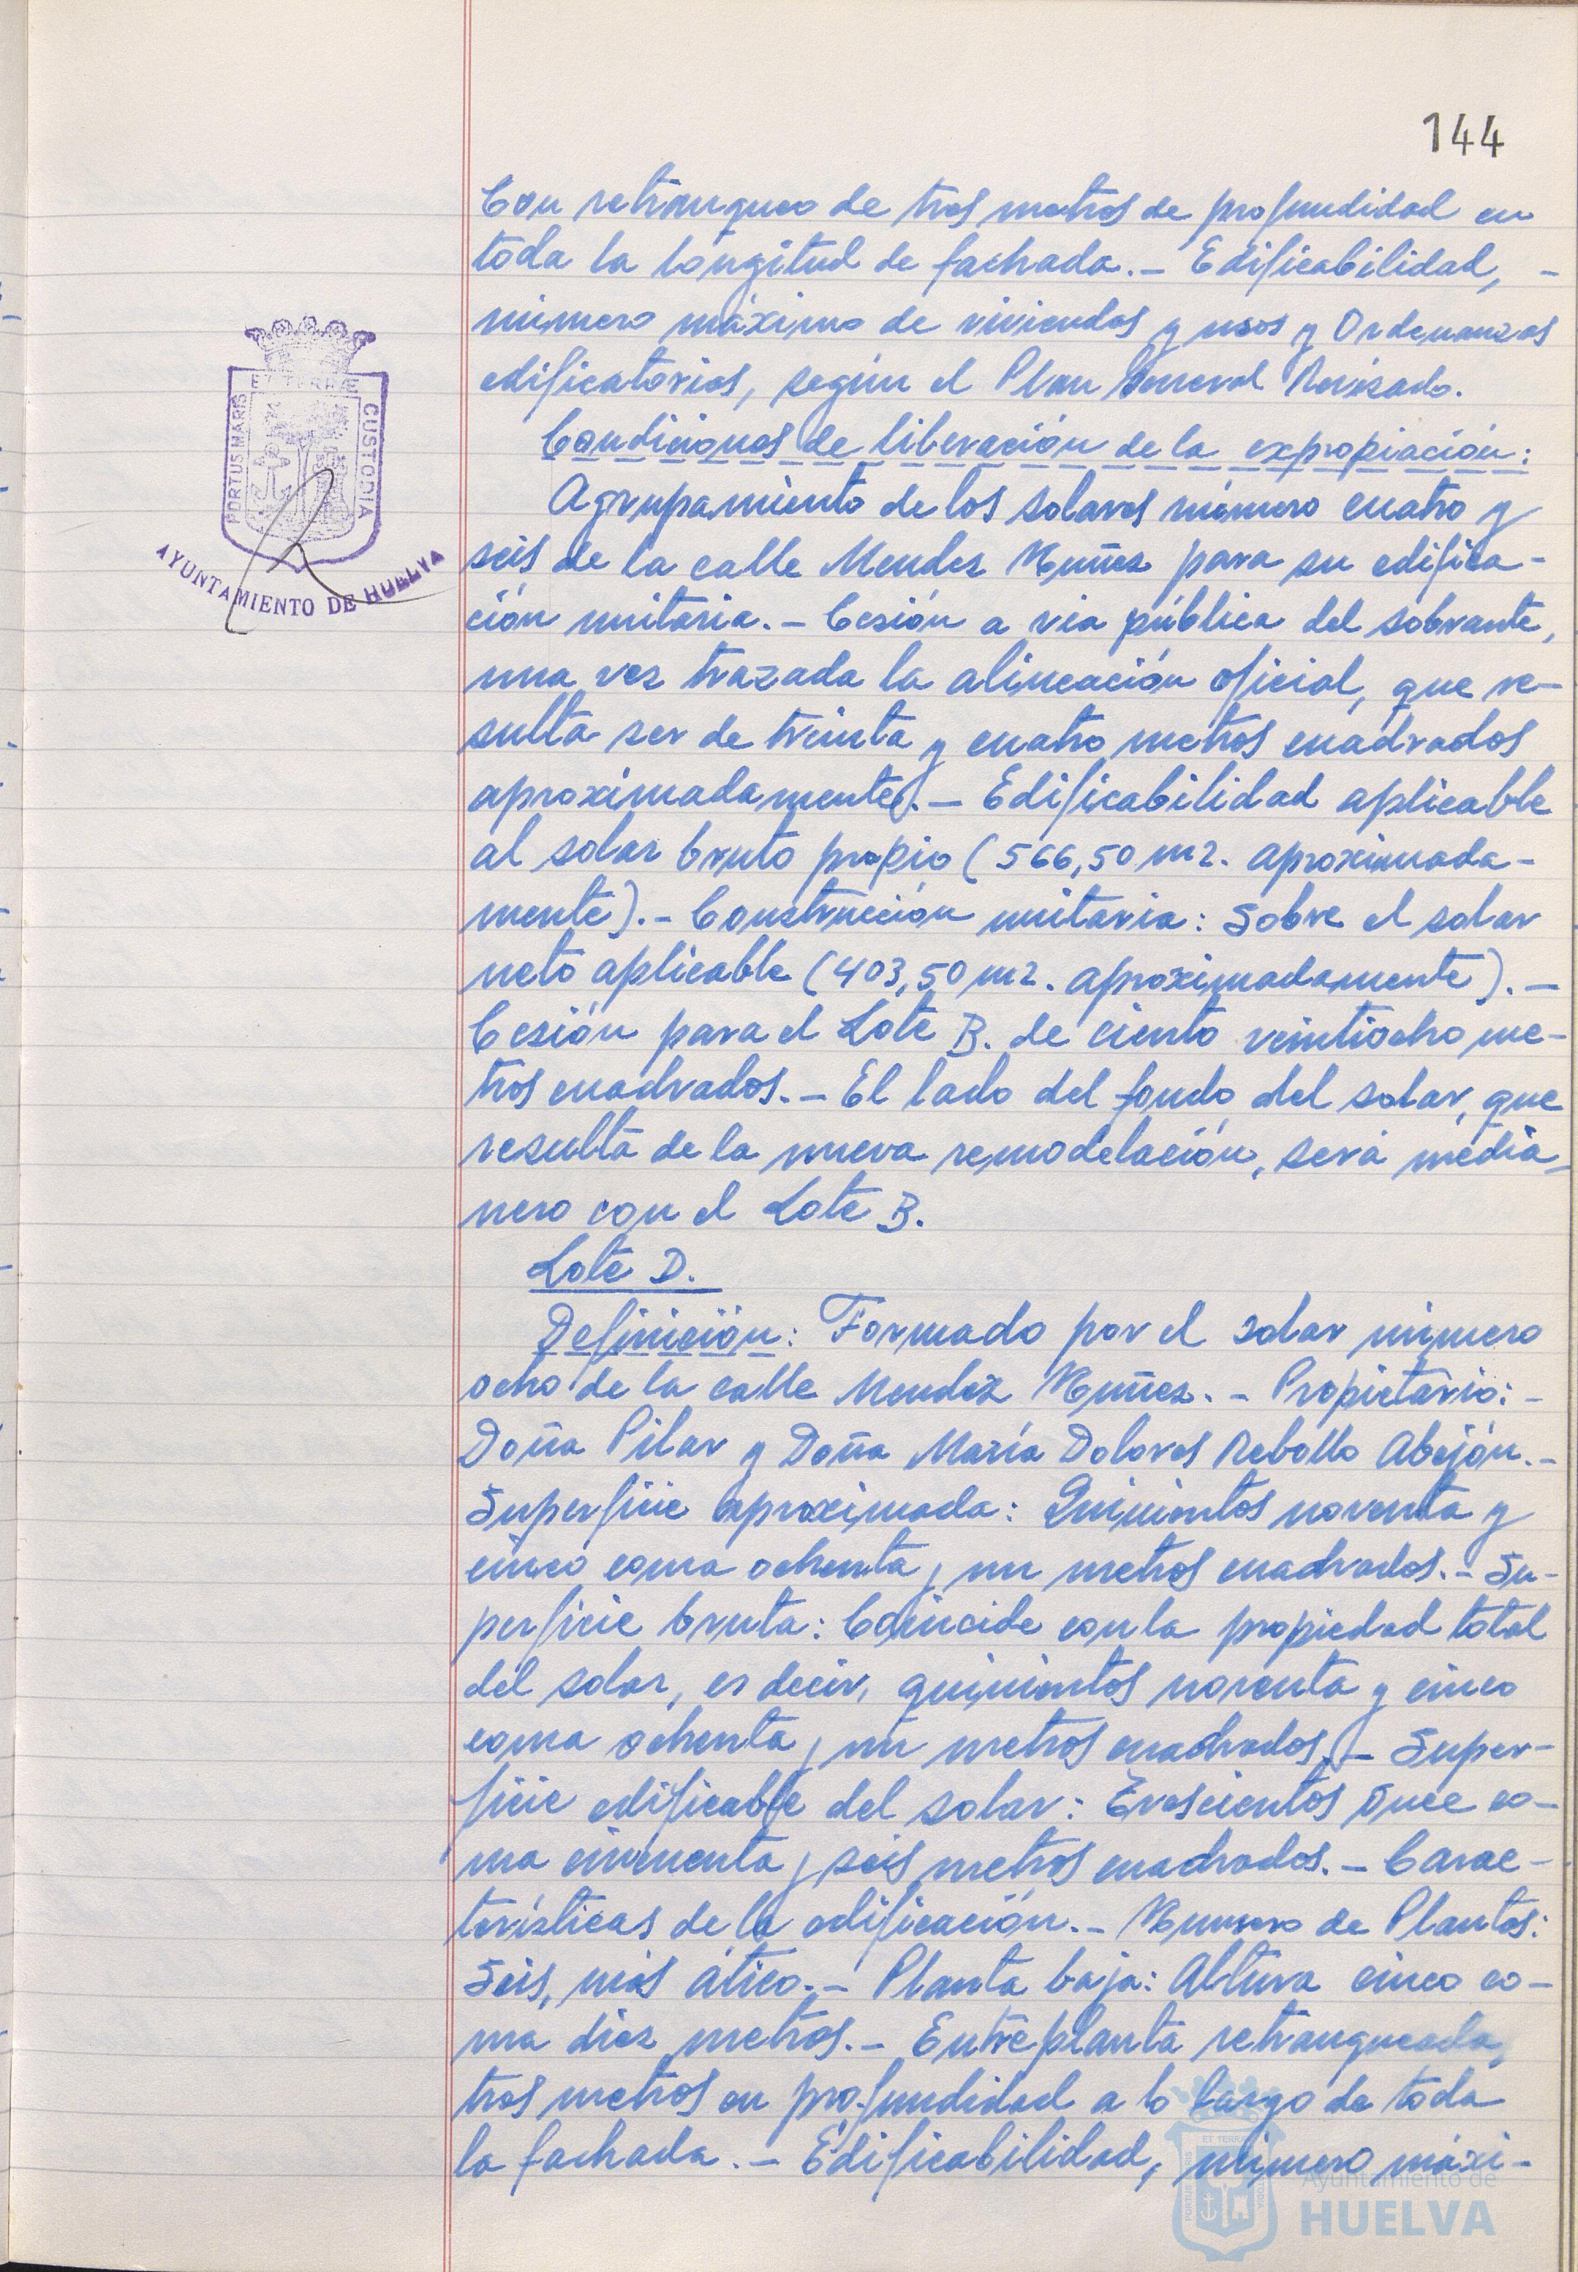 144
Con retranqueo de tres metros de profundidad en
toda la longitud de fachada.- Edificabilidad, -
número máximo de viviendas y usos y Ordenanzas
edificatorias, según el Plan General Revisado.
Condiciones de liberación de la expropiación:
Agrupamiento de los solares número cuatro y
seis de la calle Mendez Nuñez para su edifica-
ción unitaria.- Cesión a via pública del sobrante,
una vez trazada la alineación oficial, que re-
sulta ser de treinta y cuatro metros cuadrados
aproximadamente.- Edificabilidad aplicable
al solar bruto propio (566,50 m2. aproximada-
mente).- Construcción unitaria: Sobre el solar
neto aplicable (403,50 m2. aproximadamente).-
Cesión para el Lote B. de ciento veintiocho me-
tros cuadrados.- El lado del fondo del solar, que
resulta de la nueva remodelación, será media-
nero con el Lote B.
Lote D.
Definición: Formado por el solar número
ocho de la calle Mendez Nuñez.- Propietario:-
Doña Pilar y Doña María Dolores Rebollo Abejón.-
Superficie aproximada: Quinientos noventa y
cinco coma ochenta y un metros cuadrados.- Su-
perficie bruta: Coincide con la propiedad total
del solar, es decir, quinientos noventa y cinco
coma ochenta y un metros cuadrados.- Super-
ficie edificable del solar: Trescientos once co-
ma cincuenta y seis metros cuadrados.- Carac-
terísticas de la edificación.- Numero de Plantas:
Seis, más ático.- Planta baja: Altura cinco co-
ma diez metros.- Entreplanta retranqueada,
tres metros en profundidad a lo largo de toda
la fachada.- Edificabilidad, número máxi-
PORTUS MARIS ET TERRÆ CUSTODIA
AYUNTAMIENTO DE HUELVA
Ayuntamiento de
HUELVA